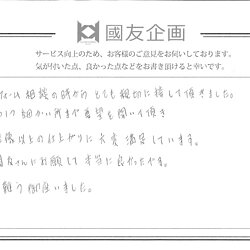 國友企画
サービス向上のため、お客様のご意見をお伺いしております。
気が付いた点、良かった点などをお書き頂けると幸いです。
相談の時から とても親切に接して頂きました。
細かい所まで希望を聞いて頂き
以上の仕上がりに大変満足しています。
さんにお願いして本当に良かったです。
難う御座いました。